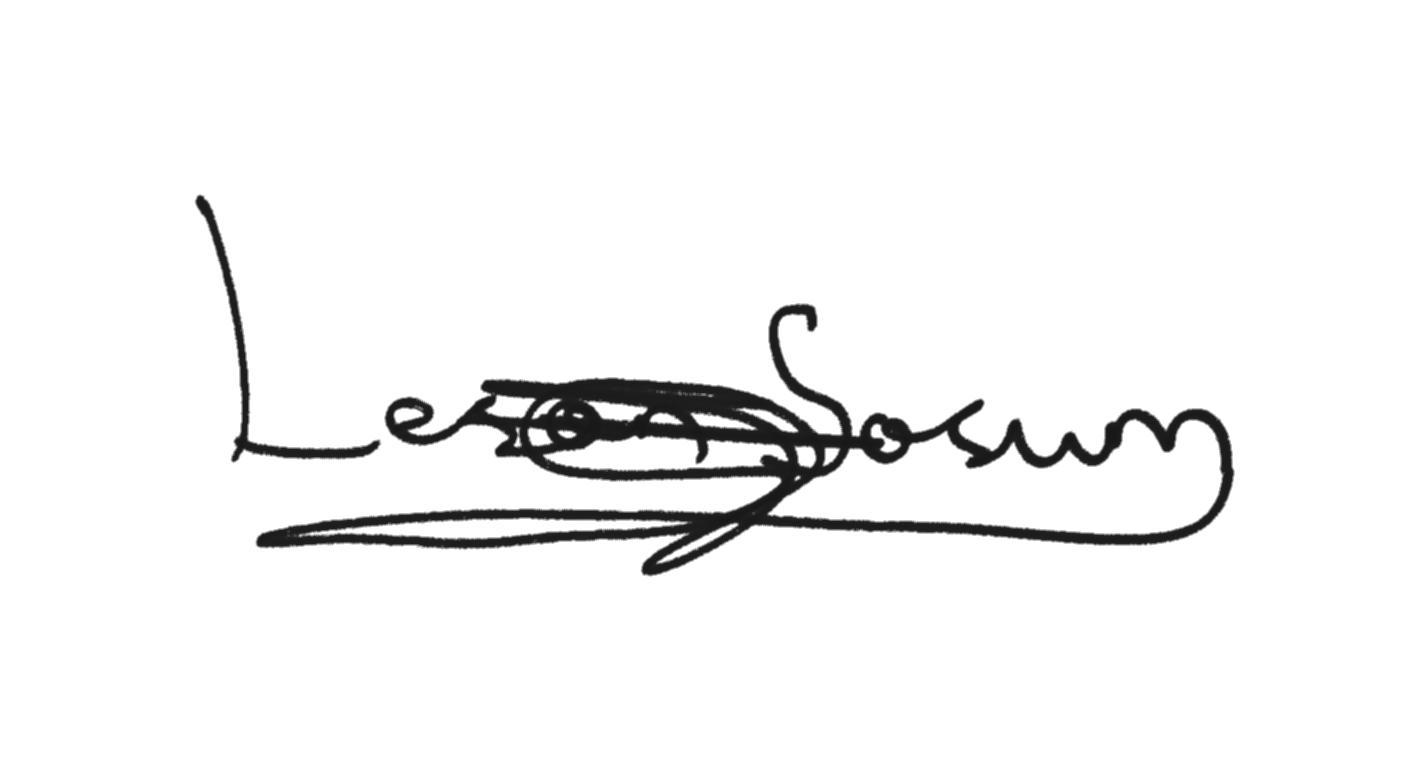 Leson Sosum